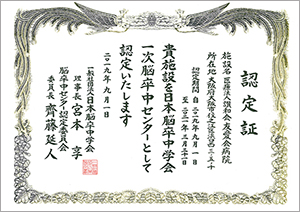 認定証
施設名 医療法人讃和会 友愛会病院
所在地 大阪府大阪市住之江区浜口
認定期間 自 二〇一九年九月一日
至 二〇二二年三月三十一日
貴施設を日本脳卒中学会
一次脳卒中センターとして
認定いたします
二〇一九年九月一日
一般社団法人 日本脳卒中学会
理事長 宮本 享
脳卒中センター認定委員会
委員長 齊藤延人